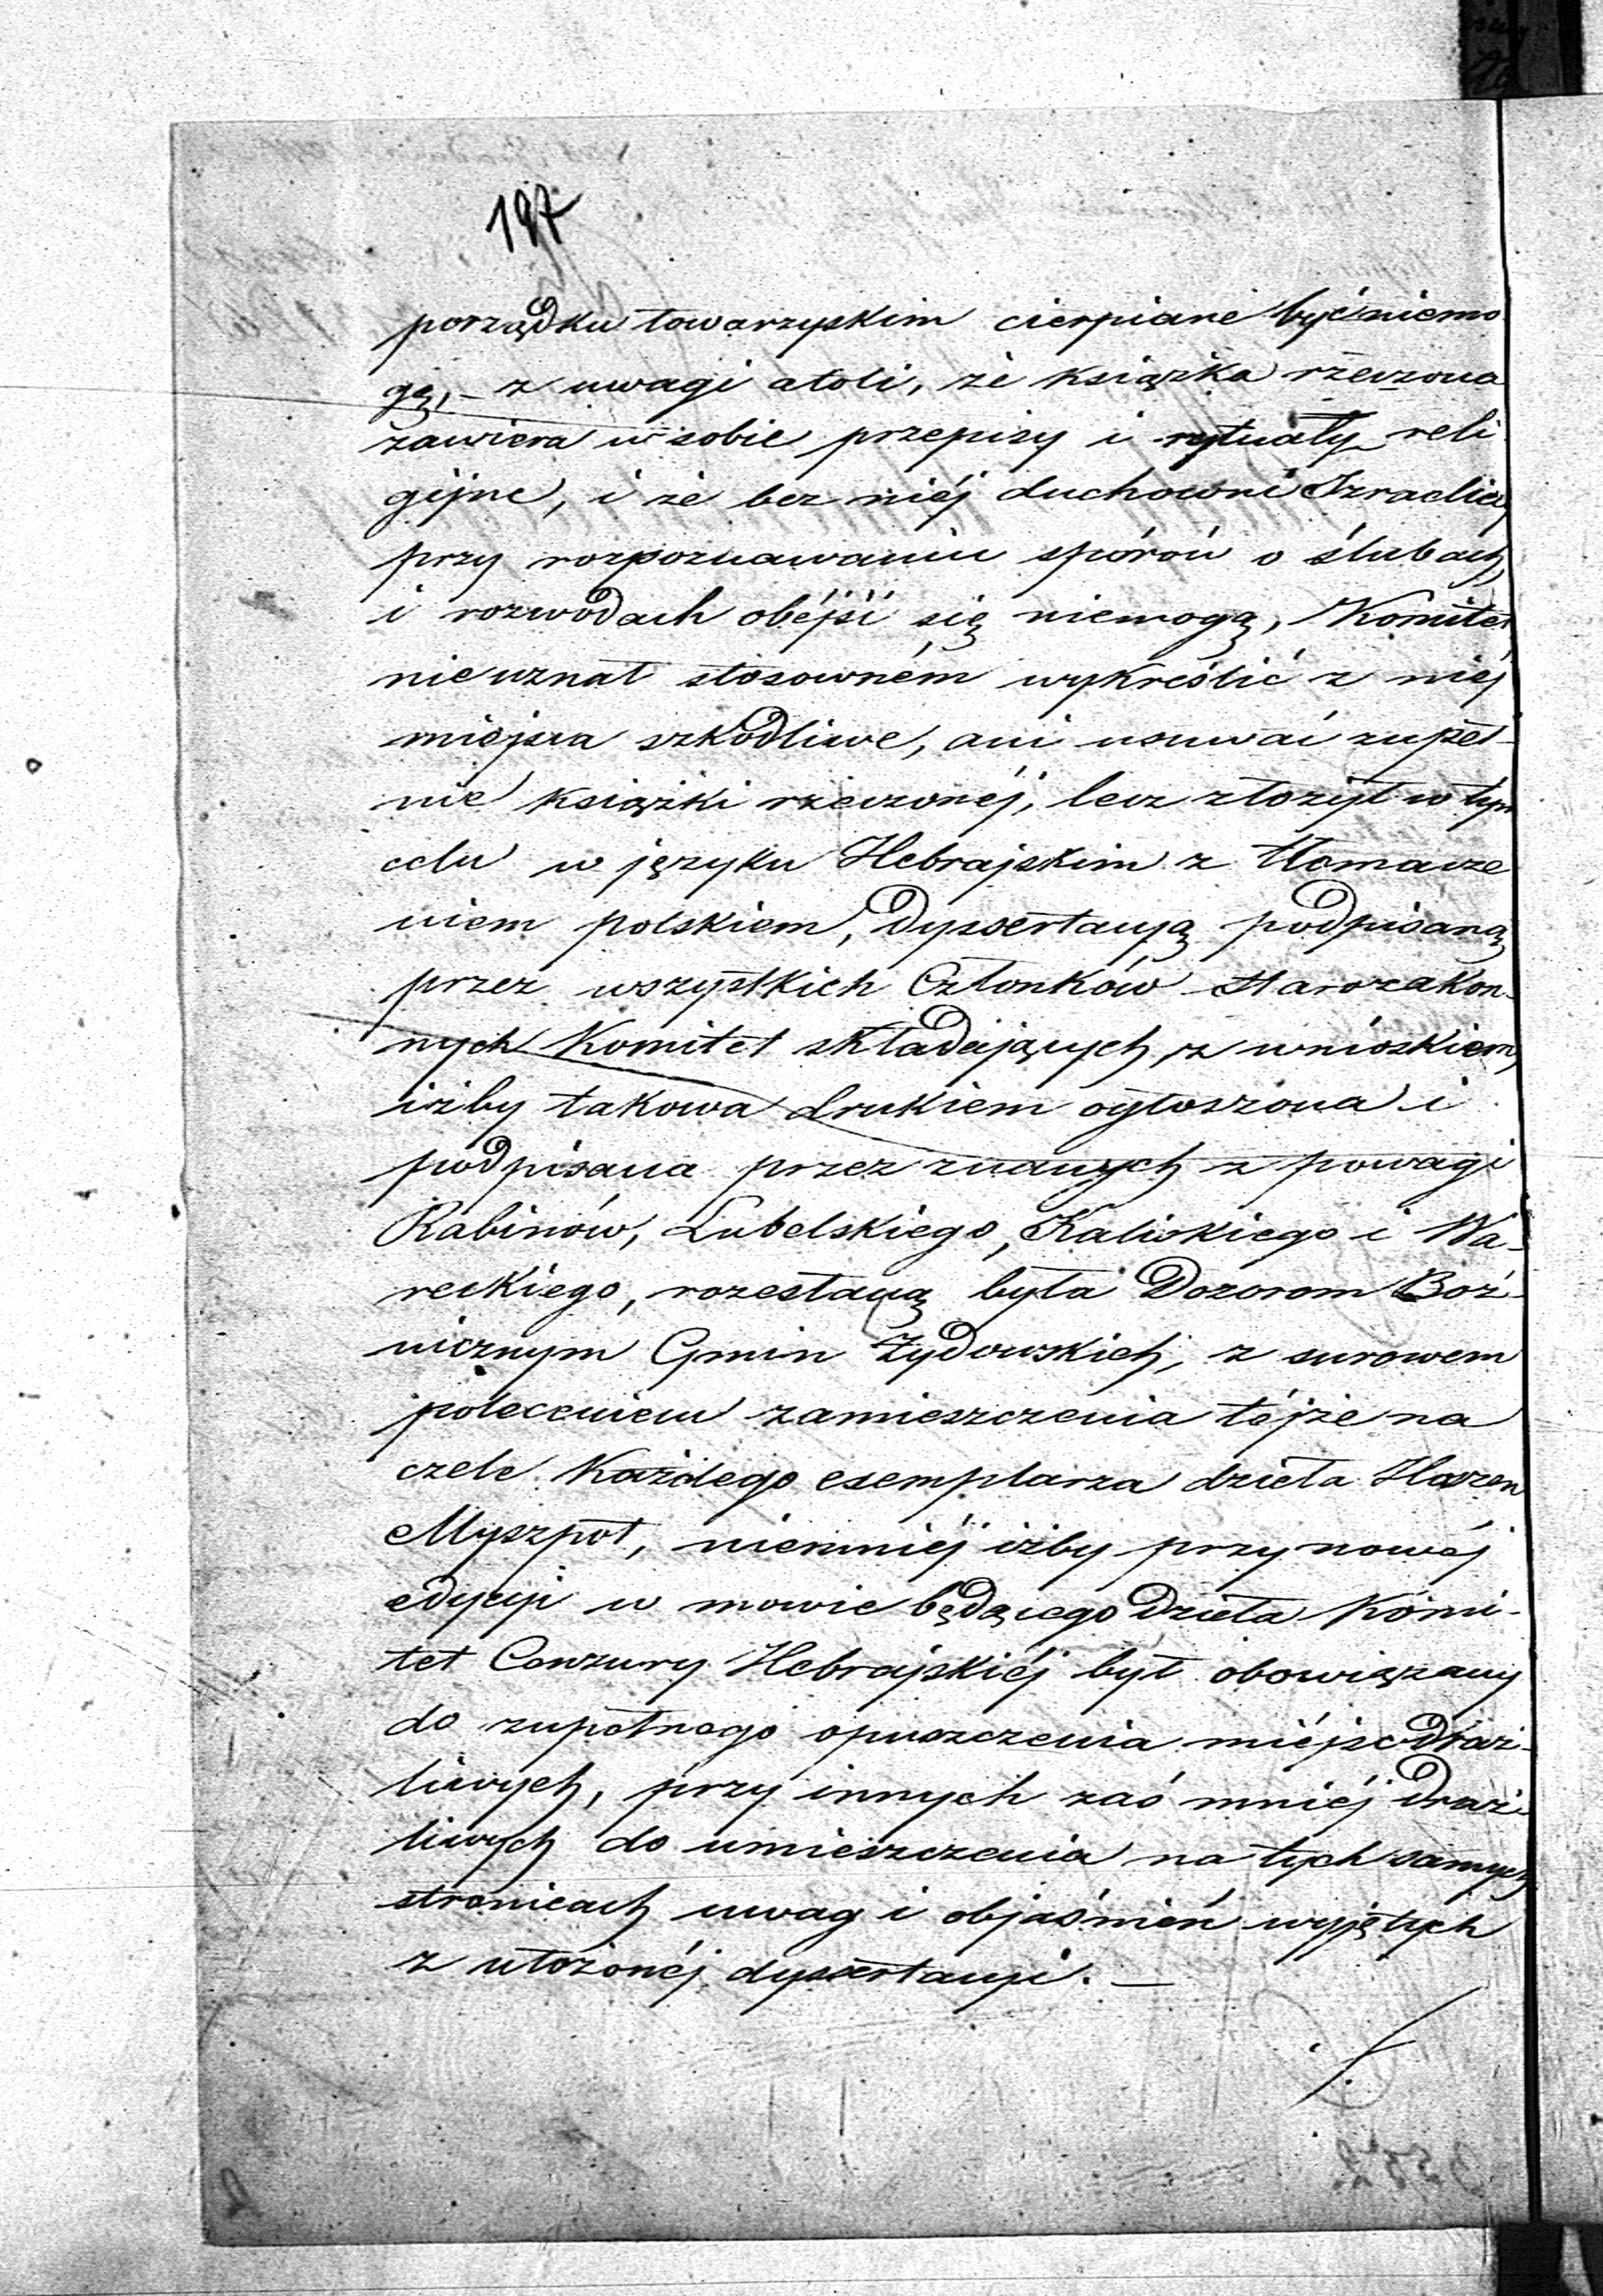 197
porządku towarzyskim cierpiane być niemo
gą, – z uwagi atoli, że książka rzeczona
zawiera w sobie przepisy i rytuały reli
gijne, i że bez niéj duchowni Izraelicy
przy rozpoznawaniu sporów o ślubach
i rozwodach obéjść się niemogą, Komitet
nie uznał stosowném wykréślić z niéj
miejsca szkodliwe, ani usuwać zupeł-
nie książki rzeczonéj, lecz złożył w tym
celu w języku Hebrajskim z tłomacze
niem polskiem, dyssertacyą podpisaną
przez wszystkich Członków Starozakon-
nych Komitet składających, z wnioskiem,
iżby takowa drukiem ogłoszona i
podpisana przez znanych z powagi
Rabinów, Lubelskiego, Kaliskiego i Wa-
reckiego, rozesłaną była Dozorom Boż-
niczym Gmin Żydowskich, z surowem
poleceniem zamieszczenia téjże na
czele każdego exemplarza dzieła Hoszen
Myszpot, niemniéj iżby przy nowéj
edycyi w mowie będącego dzieła Komi-
tet Cenzury Hebrajskiéj był obowiązany
do zupełnego opuszczenia miéjsc draż-
liwych, przy innych zaś mniéj draż-
liwych do umieszczenia na tych samych
stronicach uwag i objaśnień wyjętych
z ułożonéj dyssertacyi. —